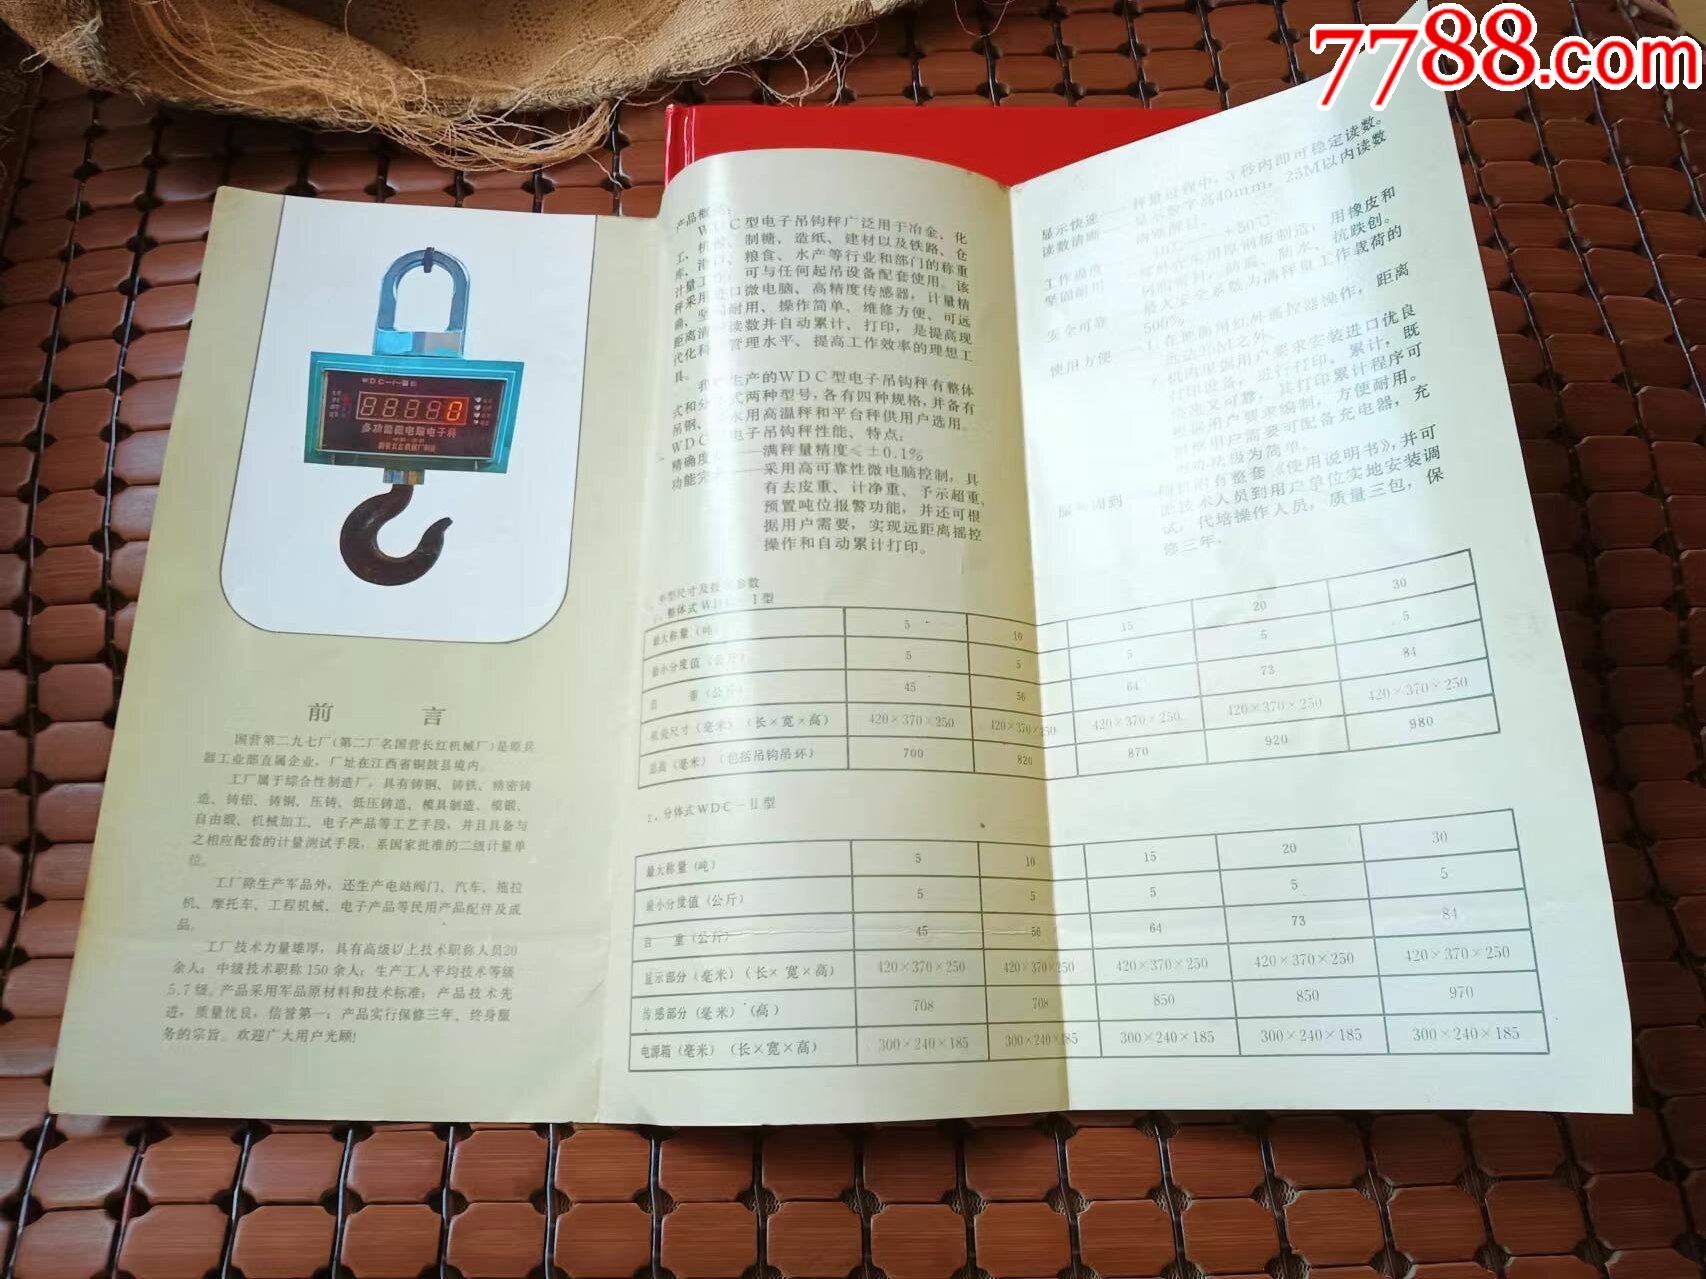 7788.com
WDC-I-型
88880
多功能微电脑电子秤
前 言
国营第二九七厂(第二厂名国营长红机械厂)是原兵
器工业部直属企业，厂址在江西省铜鼓县境内。
工厂属于综合性制造厂，具有铸钢、铸铁、精密铸
造、铸铝、铸铜、压铸、低压铸造、模具制造、模锻、
自由锻、机械加工、电子产品等工艺手段，并且具备与
之相应配套的计量测试手段，系国家批准的二级计量单
位。
工厂除生产军品外，还生产电站阀门、汽车、拖拉
机、摩托车、工程机械、电子产品等民用产品配件及成
品。
工厂技术力量雄厚，具有高级以上技术职称人员20
余人；中级技术职称150余人；生产工人平均技术等级
5.7级。产品采用军品原材料和技术标准；产品技术先
进，质量优良，信誉第一；产品实行保修三年、终身服
务的宗旨。欢迎广大用户光顾!
产品概
WDC型电子吊钩秤广泛用于冶金、化
工、机械、制糖、造纸、建材以及铁路、仓
库、港口、粮食、水产等行业和部门的称重
计量工作，可与任何起吊设备配套使用。该
秤采用进口微电脑、高精度传感器，计量精
确、坚固耐用、操作简单、维修方便、可远
距离清晰读数并自动累计、打印，是提高现
代化科学管理水平、提高工作效率的理想工
具。
我厂生产的WDC型电子吊钩秤有整体
式和分体式两种型号，各有四种规格，并备有
吊钢、铁水用高温秤和平台秤供用户选用。
WDC型电子吊钩秤性能、特点：
精确度——满秤量精度≤±0.1%
功能完——采用高可靠性微电脑控制，具
有去皮重、计净重、予示超重、
预置吨位报警功能，并还可根
据用户需要，实现远距离摇控
操作和自动累计打印。
显示快速——秤量过程中，3秒内即可稳定读数。
读数清晰——显示数字高40mm，25M以内读数
清晰醒目。
工作温度 -10℃ +50℃
坚固耐用——秤外壳采用厚钢板制造，用橡皮和
密封，防震、防水、抗跌创。
安全可靠——最大安全系数为满秤量工作载荷的
500%
使用方便——1.在地面用红外遥控器操作，距离
远达20M之外。
2.机内根据用户要求安装进口优良
打印设备，进行打印。累计，既
准又可靠，其打印累计程序可
根据用户要求编制，方便耐用。
用户需要可配备充电器，充
电办法极为简单。
周到——随机附有整套《使用说明书》，并可
派技术人员到用户单位实地安装调
试，代培操作人员，质量三包，保
修三年。
外型尺寸及技术参数
1、整体式WDC-I型
最大称量(吨) 5 10 15 20 30
最小分度值(公斤) 5 5 5 5 5
自 重(公斤) 45 56 64 73 84
秤壳尺寸(毫米)(长×宽×高) 420×370×250 420×370×250 420×370×250 420×370×250 420×370×250
总高(毫米)(包括吊钩吊环) 700 820 870 920 980
2、分体式WDC-II型
最大称量(吨) 5 10 15 20 30
最小分度值(公斤) 5 5 5 5 5
自 重(公斤) 45 56 64 73 84
显示部分(毫米)(长×宽×高) 420×370×250 420×370×250 420×370×250 420×370×250 420×370×250
传感部分(毫米)(高) 708 708 850 850 970
电源箱(毫米)(长×宽×高) 300×240×185 300×240×185 300×240×185 300×240×185 300×240×185